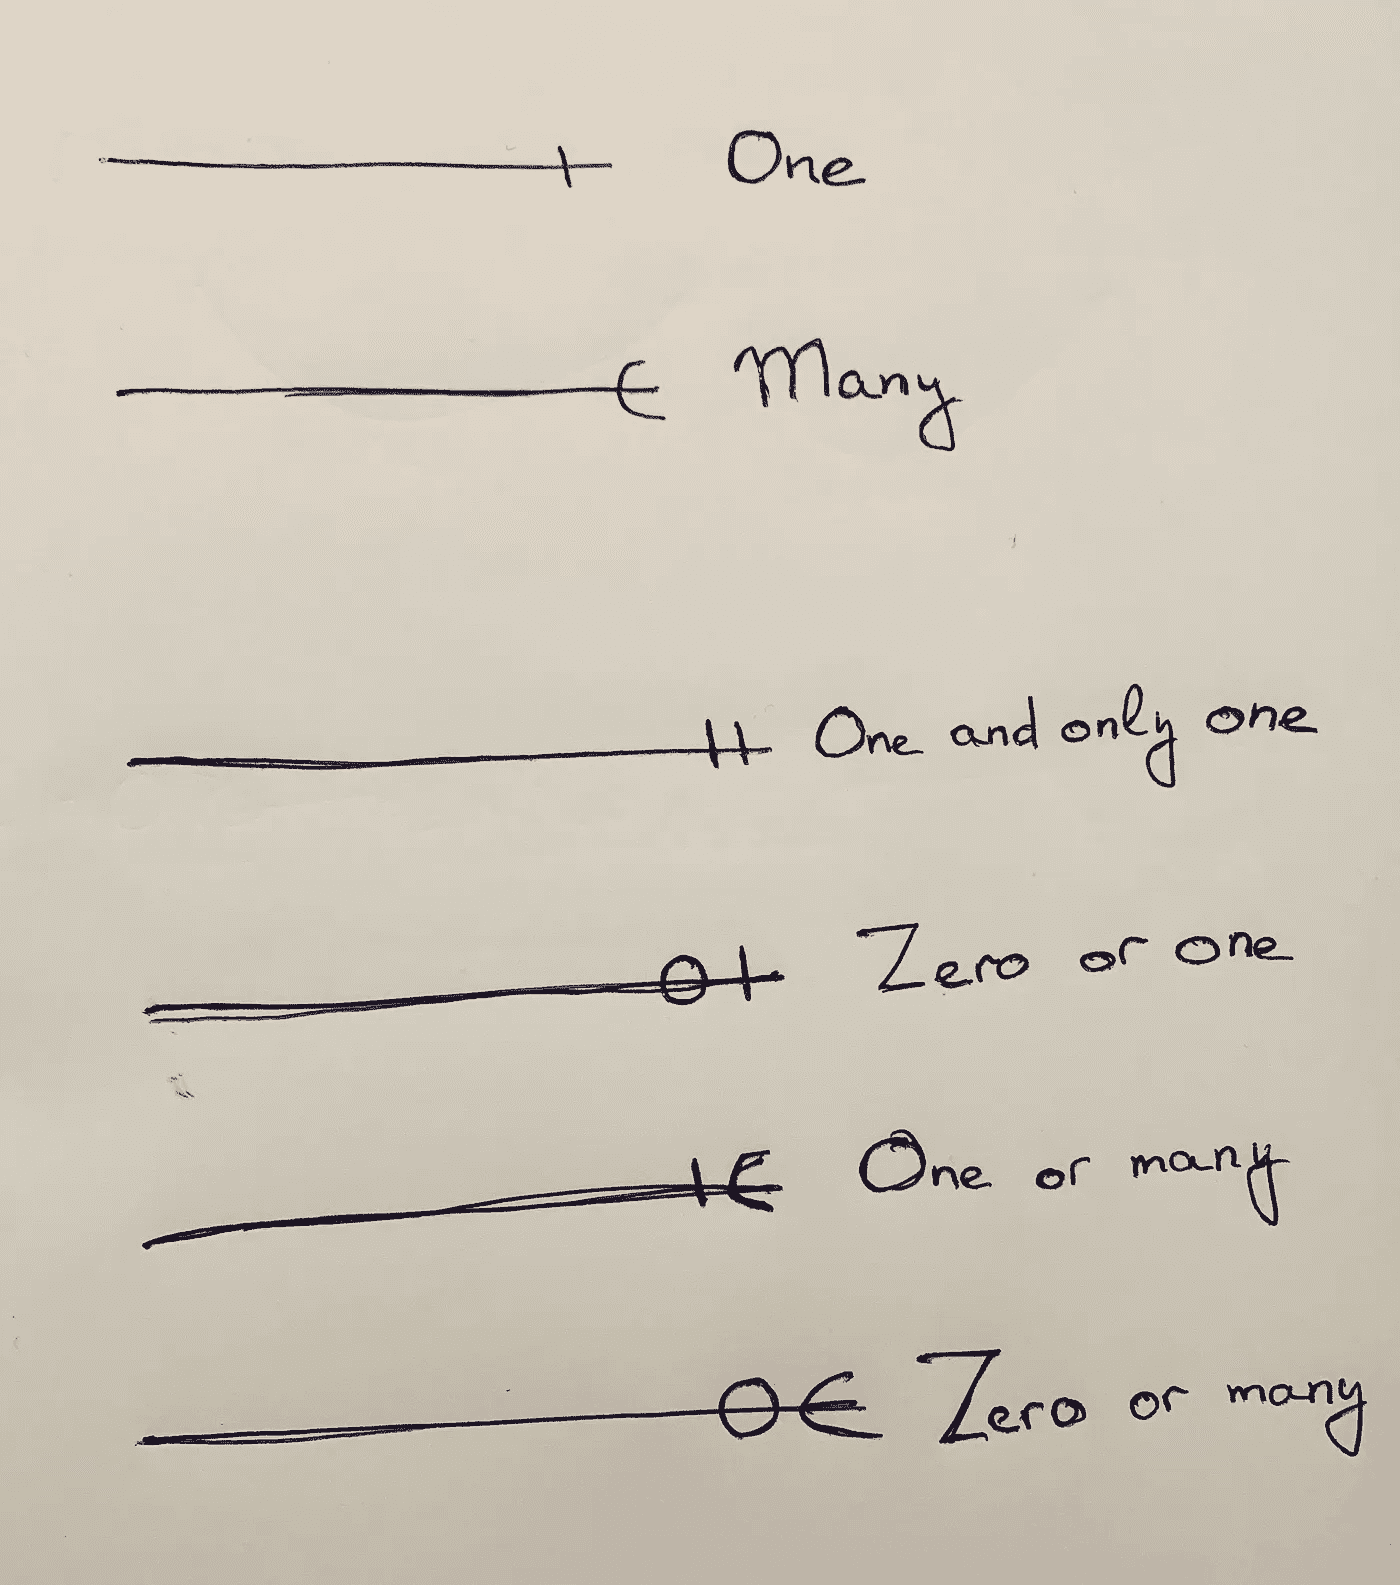 One
Many
One and only one
Zero or one
One or many
Zero or many